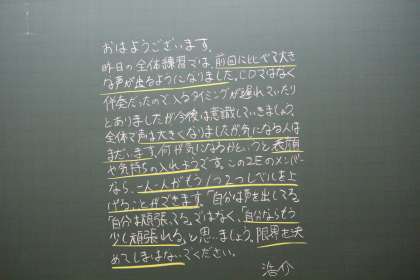 おはようございます。
昨日の全体練習では、前回に比べて大き
な声が出るようになりました。CDではなく
伴奏だったので入るタイミングが遅れていたり
とありましたが今後は意識していきましょう。
全体で声は大きくなりましたが気になる人は
まだいます。何が気になるかというと表顔
や気持ちの入れようです。この2Eのメンバー
なら、一人一人がもう1つ2つレベルを上
げることができます。「自分は声を出してる。
自分は頑張ってる。」ではなく、「自分ならもう
少し頑張れる。」と思いましょう。限界を決
めてしまはないでください。
浩介